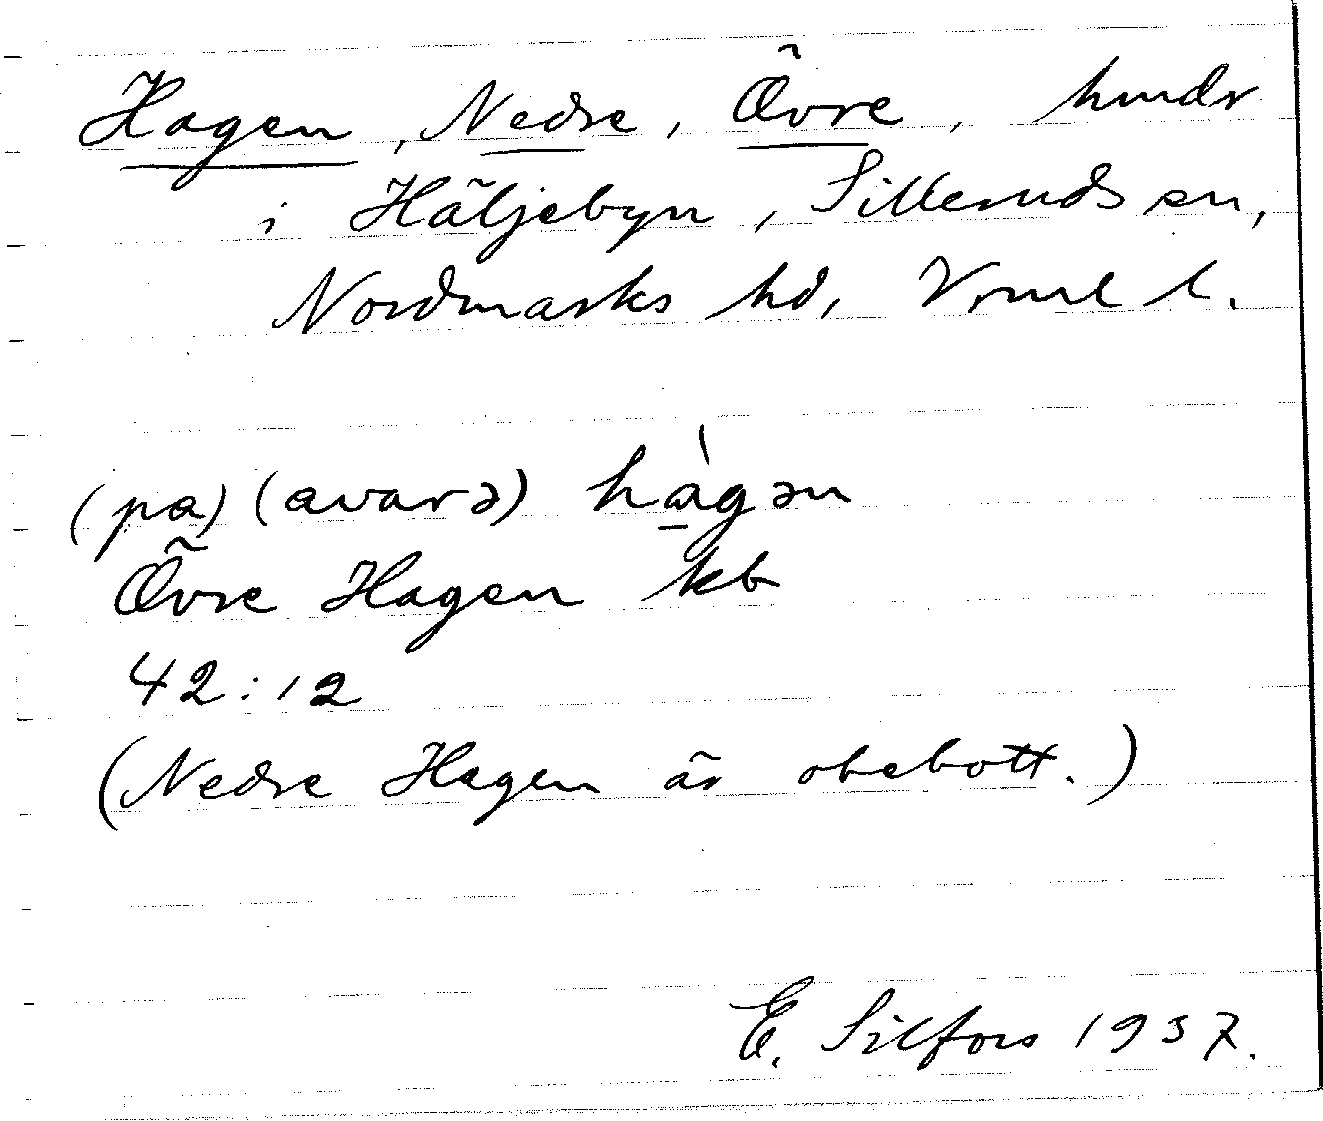 Hagen, Nedre, Övre, hmdr
i Häljebyn, Silleruds sn,
Nordmarks hd, Vrml l.
(pa) (avarə) hàgən
Övre Hagen kb
42:12
(Nedre Hagen är obebott.)
E. Silfors 1937.